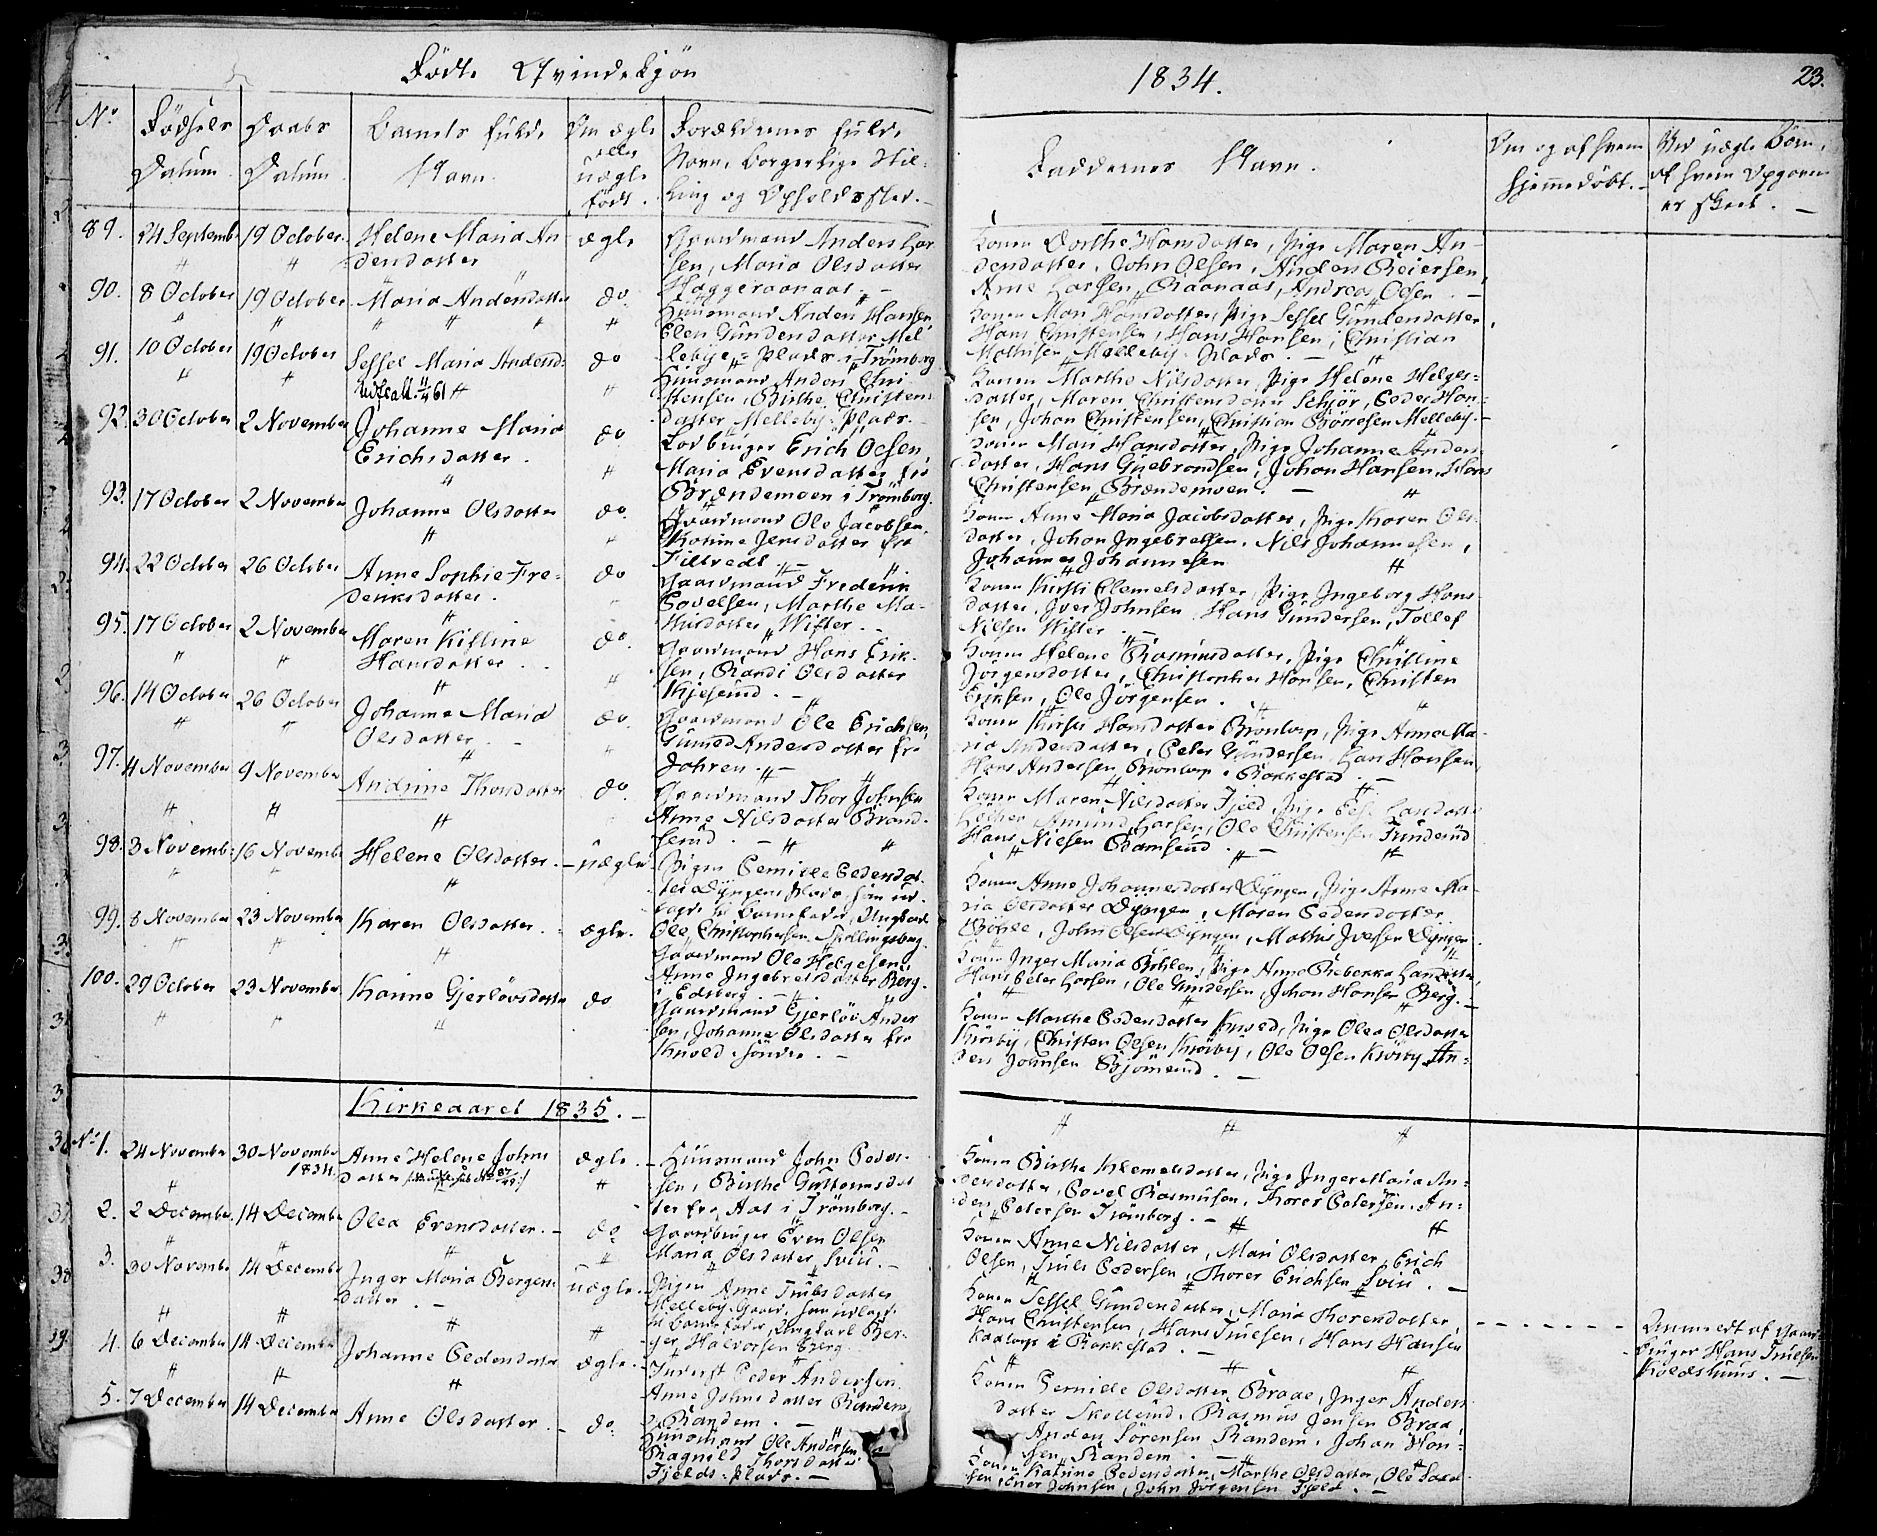 Födte Qvindekjön
1834.
23.
No
Födsels Datum
Daabs Datum
Barnets fulde Navn.
Om ægte eller uægte födt.
Forældrenes fulde Navn, borgerlige Stilling og Opholdssted.
Faddernes Navn.
Om og af hvem hjemmedöbt.
Ved uægte Börn, af hvem Opgaven er skeet.
89. 24 Septemb. 19 October. Helene Maria Andersdatter ægte
Gaardmand Anders Larsen, Maria Olsdatter
Konen Dorthe Hansdatter, Pige Maren Andersdatter, John Olsen, Anders Reiersen,
Arne Larsen Raanaas, Andreas Olsen.
90. 8 October 19 October. Maria Andersdatter do
Huusmand Anders Hansen, Elen Gundersdatter Mellebye-Plads i Trömborg
Konen Mari Hansdatter, Pige Sessel Gundersdatter,
Hans Christensen, Hans Hansen, Christian
Mathisen Mellebÿ-Plads.
91. 10 October 19 October Sessel Maria Andersd: do
Huusmand Anders Christensen, Birthe Christensdatter Mellebÿ-Plads.
Konen Marthe Nilsdatter, Pige Helene Helgesdatter, Maren Christensdatter Schjör, Peder Hansen, Johan Christensen, Christian Börresen Mellebÿ.
92. 30 October 2 November Johanne Maria Erichsdatter. do
Erich Olsen, Maria Evensdatter fra Brændemoen i Trömborg.
Konen Mari Hansdatter, Pige Johanne Andersdatter, Hans Gulbrandsen, Johan Hansen, Hans
Christensen Brændemoen.
93. 17 October 2 November Johanne Olsdatter do.
Gaardmand Ole Jacobsen, Karine Jensdatter fra
Konen Anne Maria Jacobsdatter, Pige Karen Olsdatter, Johan Ingebretsen, Nils Johannesen,
Johannes Johannesen
94. 22 October 26 October Anne Sophie Frederiksdatter. do
Gaardmand Frederik Povelsen, Marthe Wister.
Konen Kirsti Clemetsdatter, Pige Ingeborg Hansdatter, Iver Johnsen, Hans Gundersen, Tollef
Nilsen Wister.
95. 17 October 2 November Maren Kistine Hansdatter. do.
Gaardmand Hans Eriksen, Randi Olsdatter Kjeserud.
Konen Helene Rasmusdatter, Pige Christine
Jörgensdatter, Christopher Hansen, Christen
Eriksen, Ole Jörgensen.
96. 14 October 26 October Johanne Maria Olsdatter. do.
Gaardmand Ole Erichsen, Guned Andersdatter fra Jahren.
Konen Kirsti Hansdatter Brontorp, Pige Anne Maria Andersdatter, Peter Gundersen, Lars Hansen,
Hans Andersen Brontorp i Rakkestad.
97. 4 November 9 November Andrine Thorsdatter do.
Gaardmand Thor Johnsen, Anne Nilsdatter Brandserud.
Konen Maren Nilsdatter Fjeld, Pige
Amund Larsen, Ole Christensen
Hans Nielsen Ramserud.
98. 3 Novemb: 16 Novemb: Helene Olsdatter. uægte
Pigen Pernille Pedersdatter Dyngen-Plads, som udlagde til Barnefader, Ungkarl Ole Christophersen Spillingsberg.
Konen Anne Johannesdatter Dyngen, Pige Anne Maria Olsdatter Dyngen, Maren Pedersdatter
Johan Olsen Dyngen, Mathis Iversen Dyngen
99. 8 November 23 November Karen Olsdatter. ægte.
Gaardmand Ole Helgesen, Anne Ingebretsdatter Berg i Edsberg.
Konen Inger Maria Böhlen, Pige Anne Rebekka Larsdatter,
Hans Peter Larsen, Ole Gundersen, Johan Hansen Berg.
100. 29 October 23 November. Karine Gjerlövsdatter do
Gaardmand Gjerlöv Andersen, Johanne Olsdatter fra Knold söndre.
Konen Marthe Pedersdatter Knold, Pige Olea Olsdatter
Kröiby, Christen Olsen Kröiby, Ole Olsen Kröiby, Anders Johnsen Bjömerud.
Kirkeaaret 1835.
No 1. 24 November 30 November 1834. Anne Helene Johnsdatter ægte.
Huusmand John Pedersen, Birthe Guttormsdatter fra Aas i Trömborg.
Konen Birthe Klemetsdatter, Pige Inger Maria Andersdatter, Povel Rasmusen, Thorer Petersen, Anders Petersen Trömborg.
2. 2 December. 14 Decembe Olea Evensdatter. do
Gaardbruger Even Olsen, Maria Olsdatter, Sviu.
Konen Anne Nilsdatter, Mari Olsdatter, Erich
Olsen, Truls Pedersen, Thorer Erichsen Sviu.
3. 30 Novembe 14 Decembe Inger Maria Bergersdatter. uægte.
Pigen Anne Trulsdatter Mellebÿ-Gaard, som udlagde til Barnefader, Ungkarl Berger Halvorsen Berg.
Konen Sessel Gundersdatter, Maria Thorersdatter,
Hans Christensen, Hans Truelsen, Hans Hansen
Kaatorp i Rakkestad.
Anmeldt af Gaardbruger Hans Truelsen Koldshuus.
4. 6 December 14 December Johanne Pedersdatter ægte.
Inderst Peder Andersen, Anne Johnsdatter Randem, Randem.
Konen Pernille Olsdatter, Braae, Inger Andersdatter Skollerud, Rasmus Jensen Braa,
Anders Sörensen Randem, Johan Hansen, Randem.
5. 7 December 14 December Anne Olsdatter. do.
Huusmand Ole Andersen, Ragnild Thorsdatter Fjelds-Plads.
Konen Katrine Pedersdatter, Marthe Olsdatter, Ole
Iver Johnsen, John Jörgensen Fjeld.